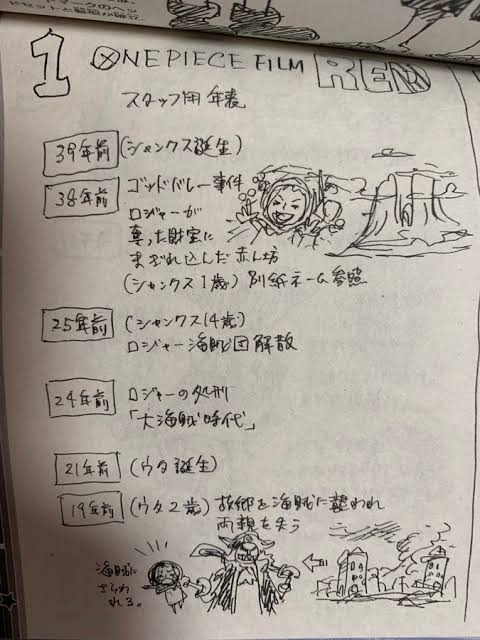 ドセットと髪留が確立。
1 ONE PIECE FILM RED
スタッフ用年表
39年前 (シャンクス誕生)
38年前 ゴッドバレー事件
ロジャーが
奪った財宝に
まぎれ込んだ赤ん坊
(シャンクス1歳) 別紙ネーム参照
25年前 (シャンクス14歳)
ロジャー海賊団解散
24年前 ロジャーの処刑
「大海賊時代」
21年前 (ウタ誕生)
19年前 (ウタ2歳) 故郷を海賊に襲われ
両親を失う
海賊に
さらわ
れる。